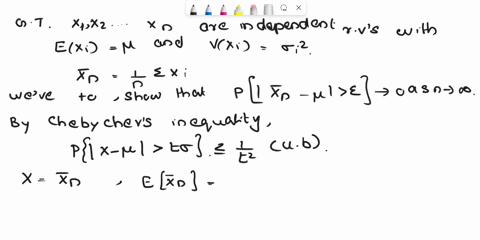 G.T. x1,x2... xn are independent r.v's with
E(xi) = μ and V(xi) = σi².
x̄n = 1/n Σxi
we've to, show that P[|x̄n - μ|>ε] → 0 as n→∞.
By Chebycher's inequality,
P{|x-μ| > tσ} ≤ 1/t² (u.b).
X = x̄n , E[x̄n] =